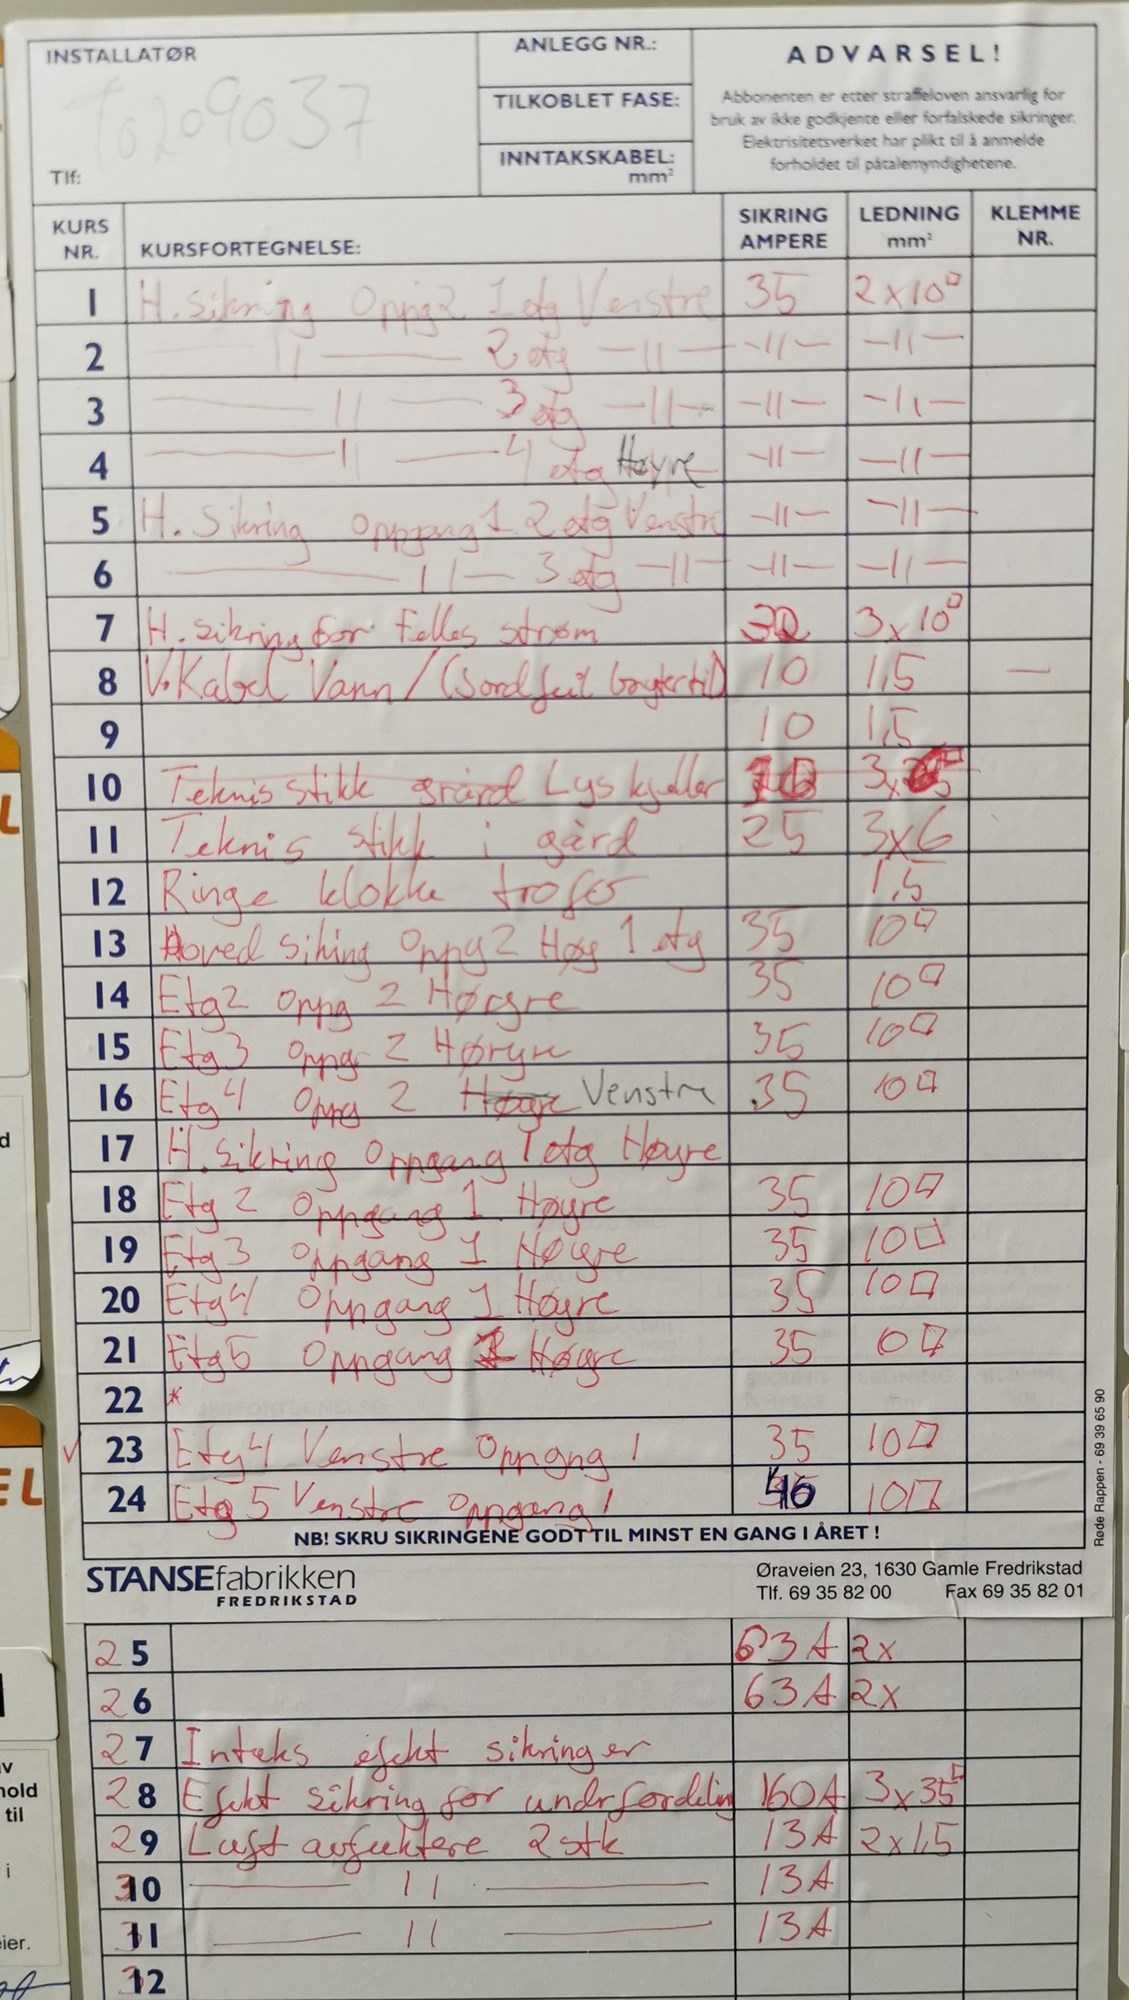 INSTALLATØR
ANLEGG NR.:
TILKOBLET FASE:
INNTAKSKABEL:
mm²
Tlf:
ADVARSEL!
Abbonenten er etter straffeloven ansvarlig for
bruk av ikke godkjente eller forfalskede sikringer.
Elektrisitetsverket har plikt til å anmelde
forholdet til påtalemyndighetene.
KURS NR. KURSFORTEGNELSE: SIKRING AMPERE LEDNING mm² KLEMME NR.
1 H. sikring Oppg 2 1 etg Venstre 35 2x10□
2 —11— 2 etg —11— —11— —11—
3 —11— 3 etg —11— —11— —11—
4 —11— 4 etg Høyre —11— —11—
5 H. Sikring oppgang 1 2 etg Venstre —11— —11—
6 —11— 3 etg —11— —11— —11—
7 H. sikring for Felles strøm 32 3x10□
8 V.Kabel Vann / 10 1,5 —
9 10 1,5
10 Teknis stikk Lys kjeller
11 Teknis stikk i gård 25 3x6
12 Ringe klokke trofo 1,5
13 Hoved sikring Oppg 2 Høy 1 etg 35 10□
14 Etg 2 oppg 2 Høyre 35 10□
15 Etg 3 oppg 2 Høryre 35 10□
16 Etg 4 Oppg 2 Høyre Venstre 35 10□
17 H. sikring Oppgang 1 etg Høyre
18 Etg 2 Oppgang 1 Høyre 35 10□
19 Etg 3 Oppgang 1 Høyre 35 10□
20 Etg 4 Oppgang 1 Høyre 35 10□
21 Etg 5 Oppgang 1 Høyre 35 0□
22 *
✓ 23 Etg 4 Venstre Oppgng 1 35 10□
24 Etg 5 Venstre Oppgang 1 10□
NB! SKRU SIKRINGENE GODT TIL MINST EN GANG I ÅRET !
STANSEfabrikken
FREDRIKSTAD
Øraveien 23, 1630 Gamle Fredrikstad
Tlf. 69 35 82 00 Fax 69 35 82 01
Røde Rappen - 69 39 65 90
25 63A 2x
26 63A 2x
27 Inteks efekt sikringer
28 Efekt sikring for undrfordeling 160A 3x35□
29 Luft avfuktere 2 stk 13A 2x1,5
30 —11— 13A
31 —11— 13A
32